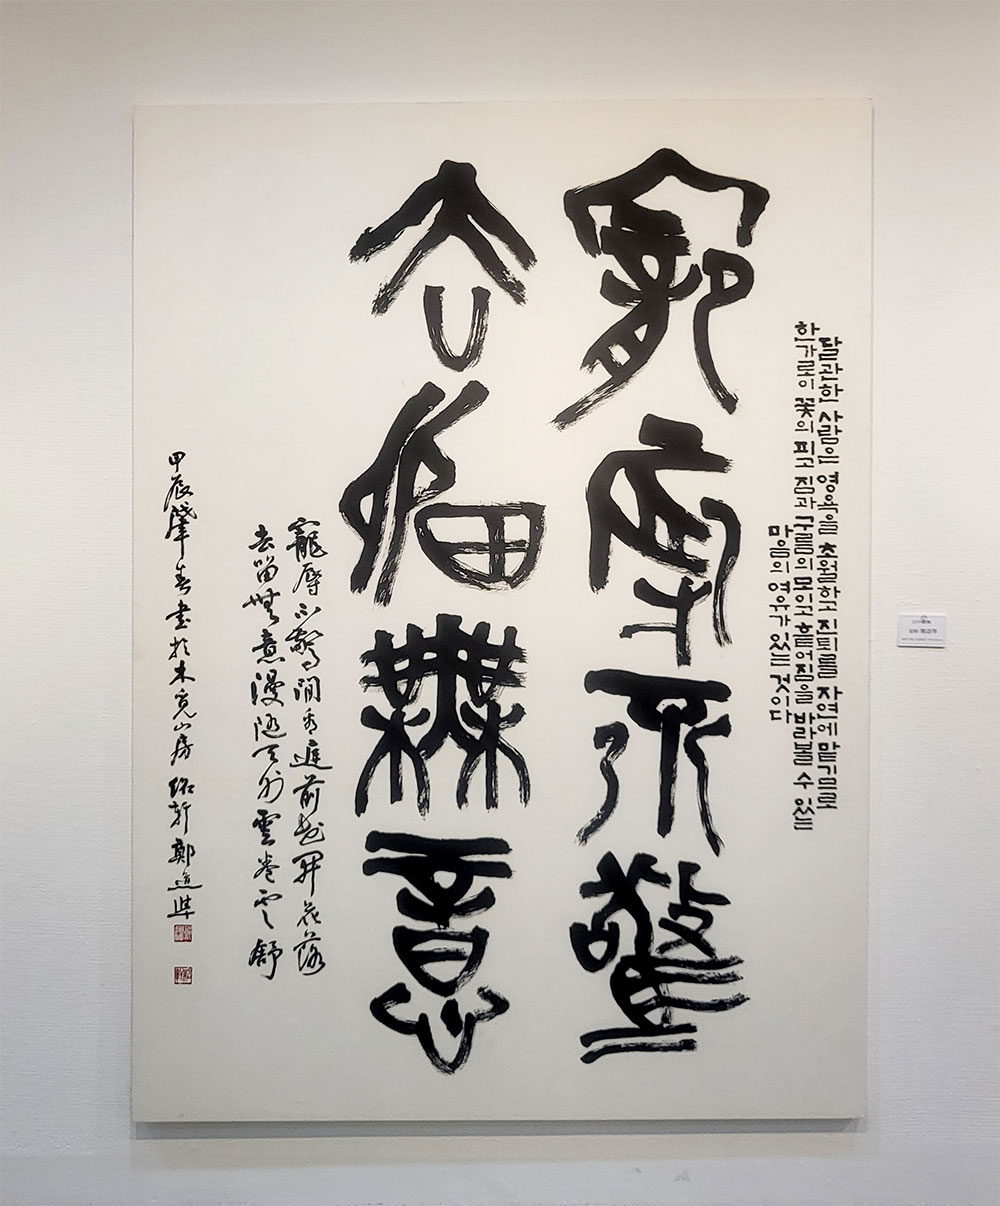 달관한 사람은 영욕을 초월하고 진퇴를 자연에 맡기므로
한가로이 꽃의 피고 짐과 구름의 모이고 흩어짐을 바라볼 수 있는
마음의 여유가 있는 것이다
寵辱不驚
去留無意
寵辱不驚閒看庭前花開花落
去留無意漫隨天外雲卷雲舒
甲辰肇春書於木覓山房 紹軒 鄭道準